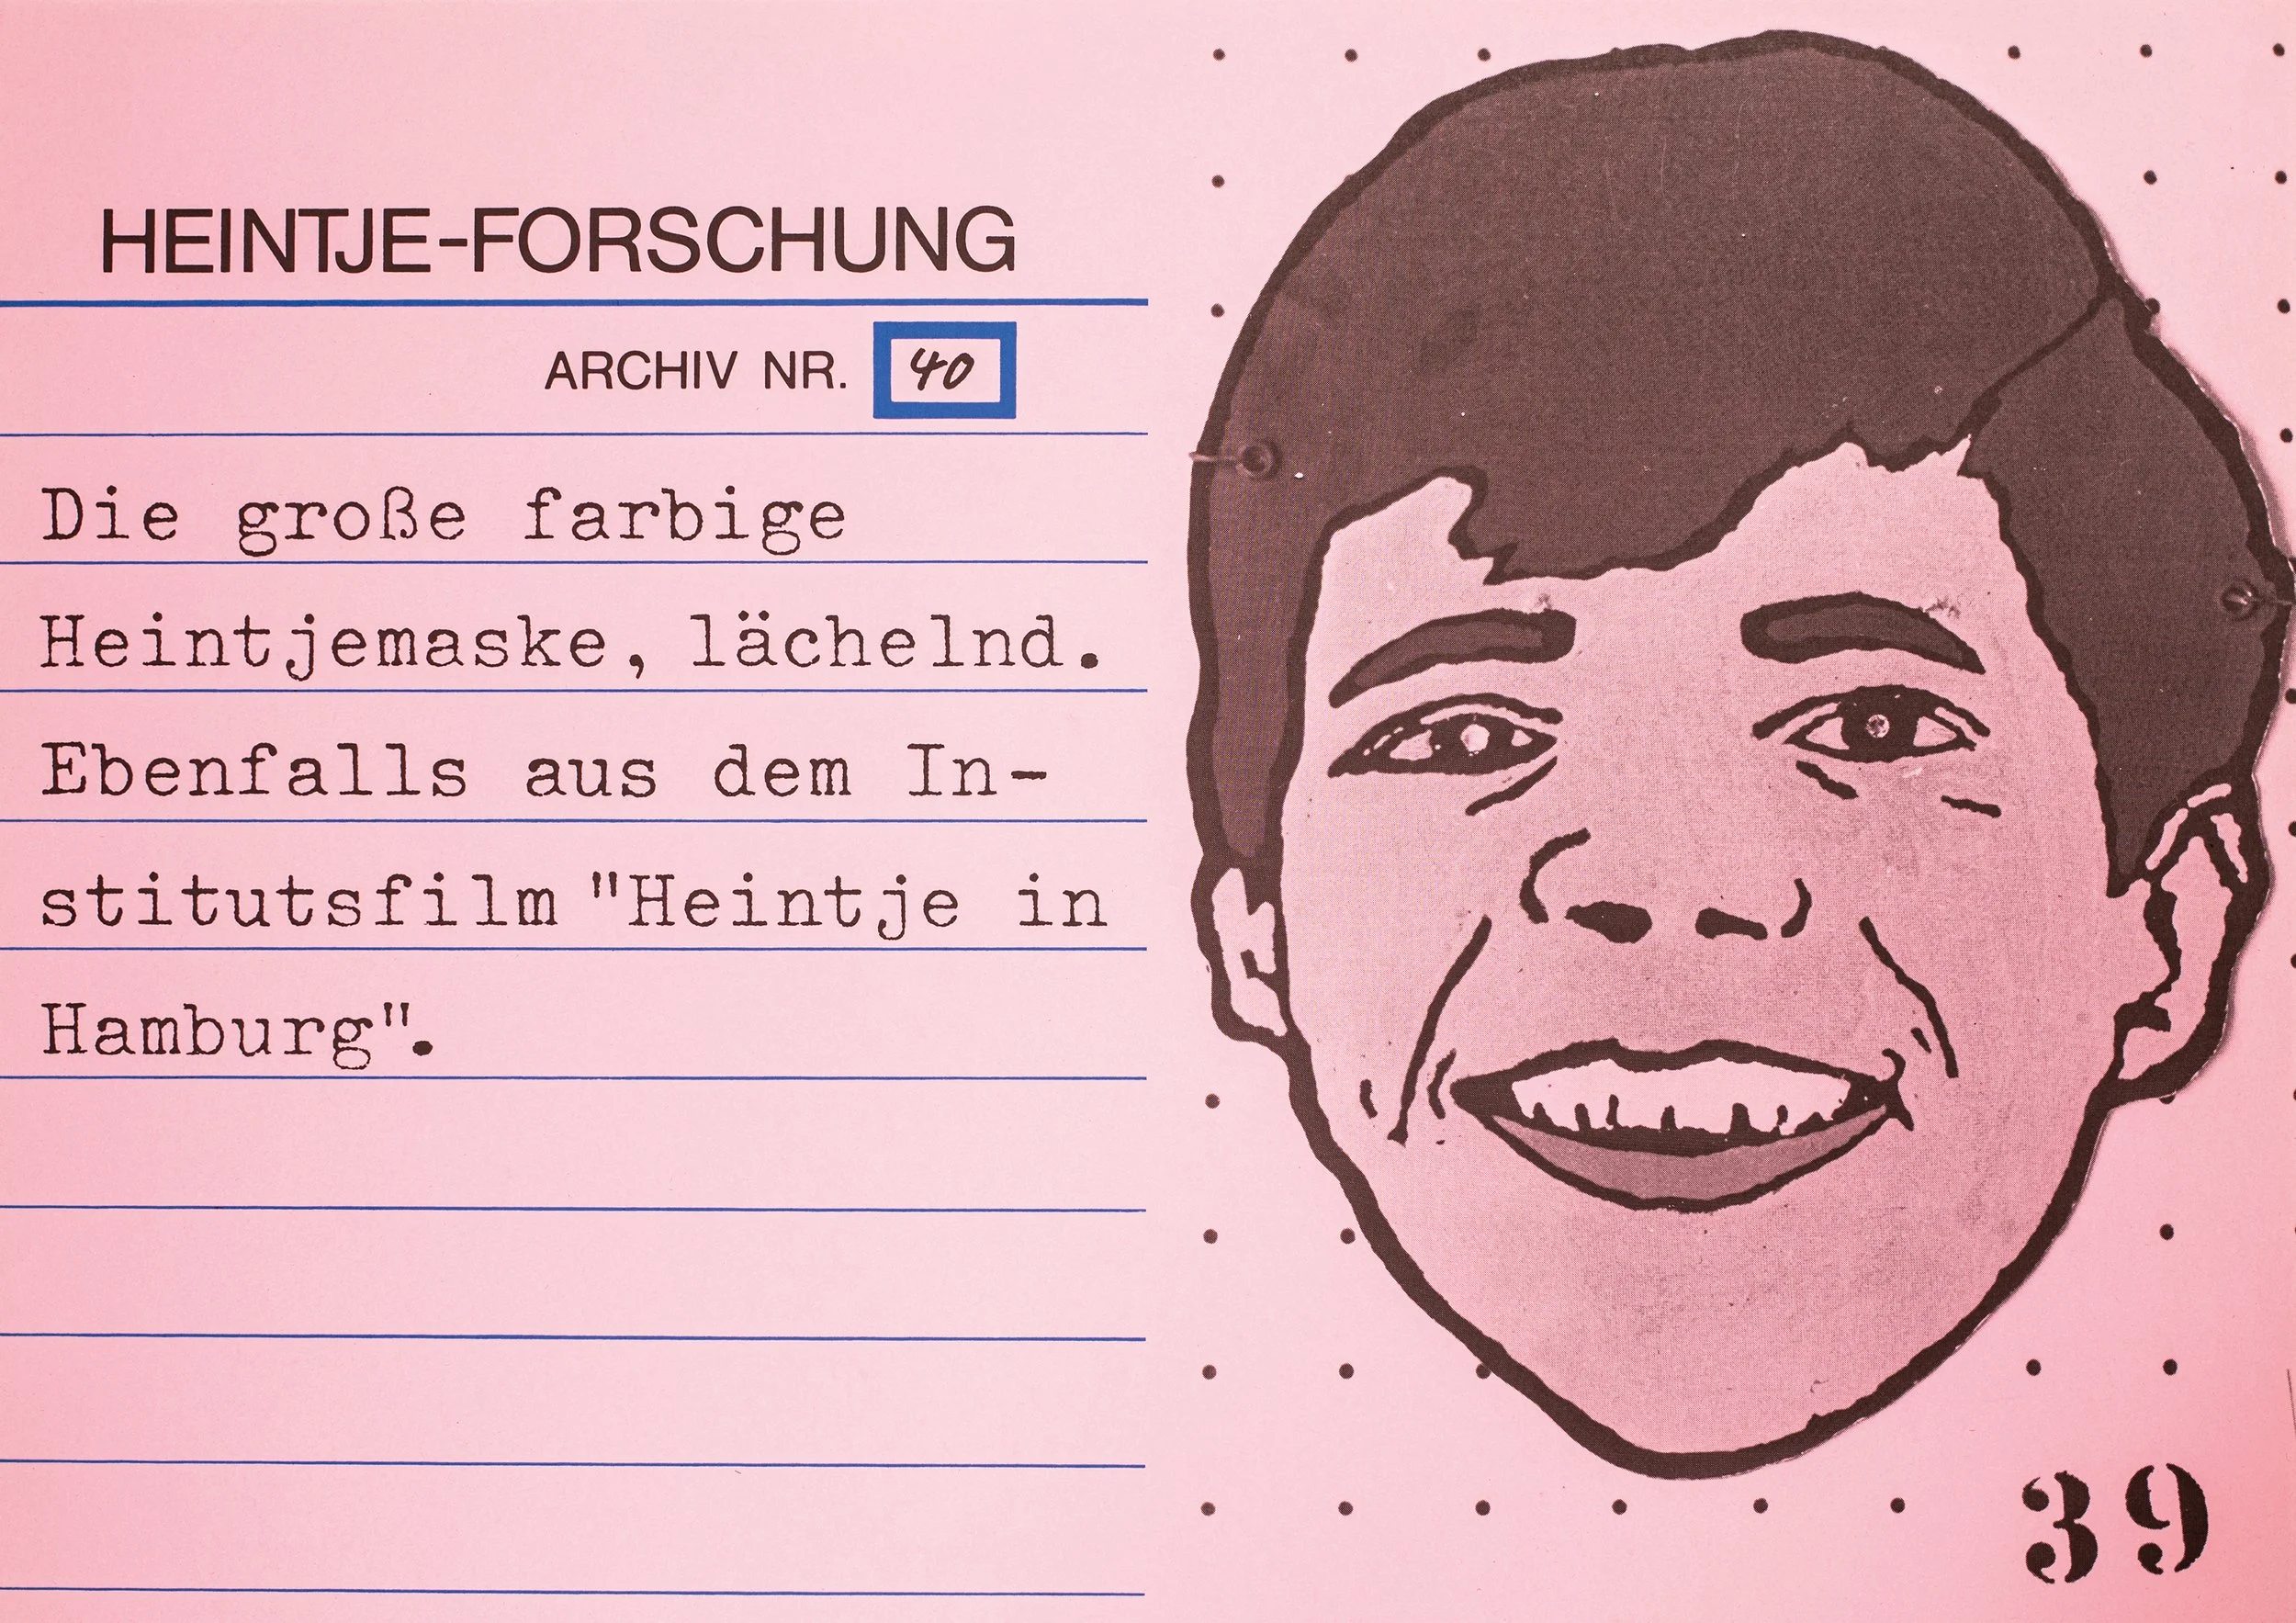 HEINTJE-FORSCHUNG
ARCHIV NR. 40
Die große farbige
Heintjemaske, lächelnd.
Ebenfalls aus dem In-
stitutsfilm "Heintje in
Hamburg".
39